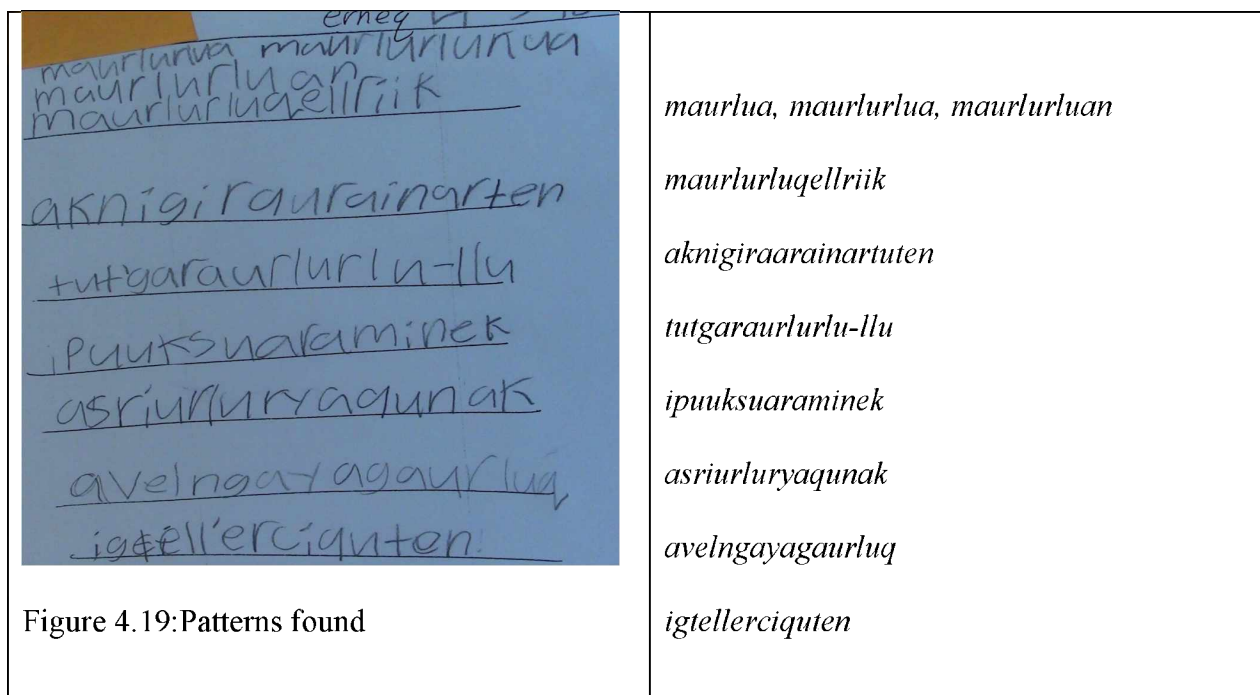 erneq
maurlurlua maurlurlunua
maurlurluan
maurlurluqellriik
aknigiraurainarten
tutgaraurlurlu-llu
ipuuksuaraminek
asriurluryaqunak
avelngayagaurluq
igtell'erciquten
Figure 4.19:Patterns found
maurlua, maurlurlua, maurlurluan
maurlurluqellriik
aknigiraarainartuten
tutgaraurlurlu-llu
ipuuksuaraminek
asriurluryaqunak
avelngayagaurluq
igtellerciquten